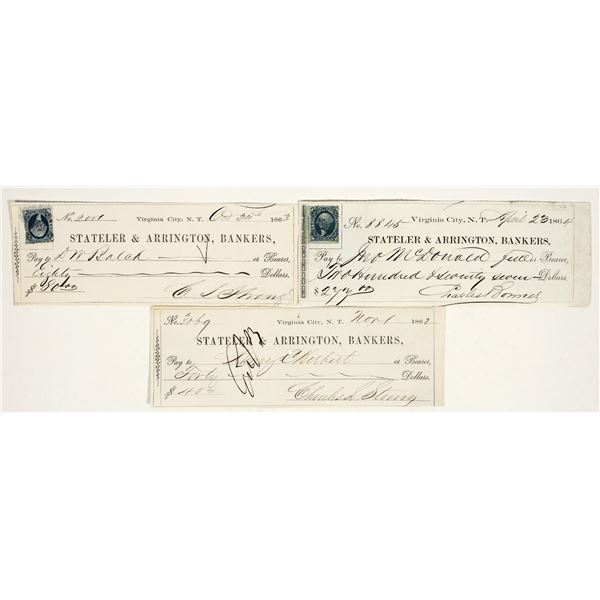 No. 2001 Virginia City, N. T. Oct 30th 1863
STATELER & ARRINGTON, BANKERS,
Pay to D W Balch or Bearer,
Eighty Dollars.
$80.00
C L Strong
No. 8845 Virginia City, N. T. April 23 1864
STATELER & ARRINGTON, BANKERS,
Pay to Jno McDonald or Bearer,
Two Hundred & seventy seven Dollars.
$277.00
Charles Bonner
No. 3069 Virginia City, N. T. Nov 1 1862
STATELER & ARRINGTON, BANKERS,
Pay to Herbert or Bearer
Forty Dollars.
$40.00
Charles L Strong